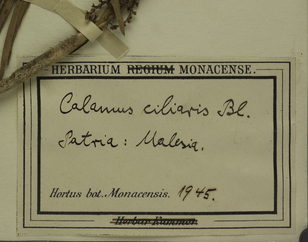 HERBARIUM REGIUM MONACENSE.
Calamus ciliaris Bl.
Patria: Malesia.
Hortus bot. Monacensis. 1945.
Herbar Kummer